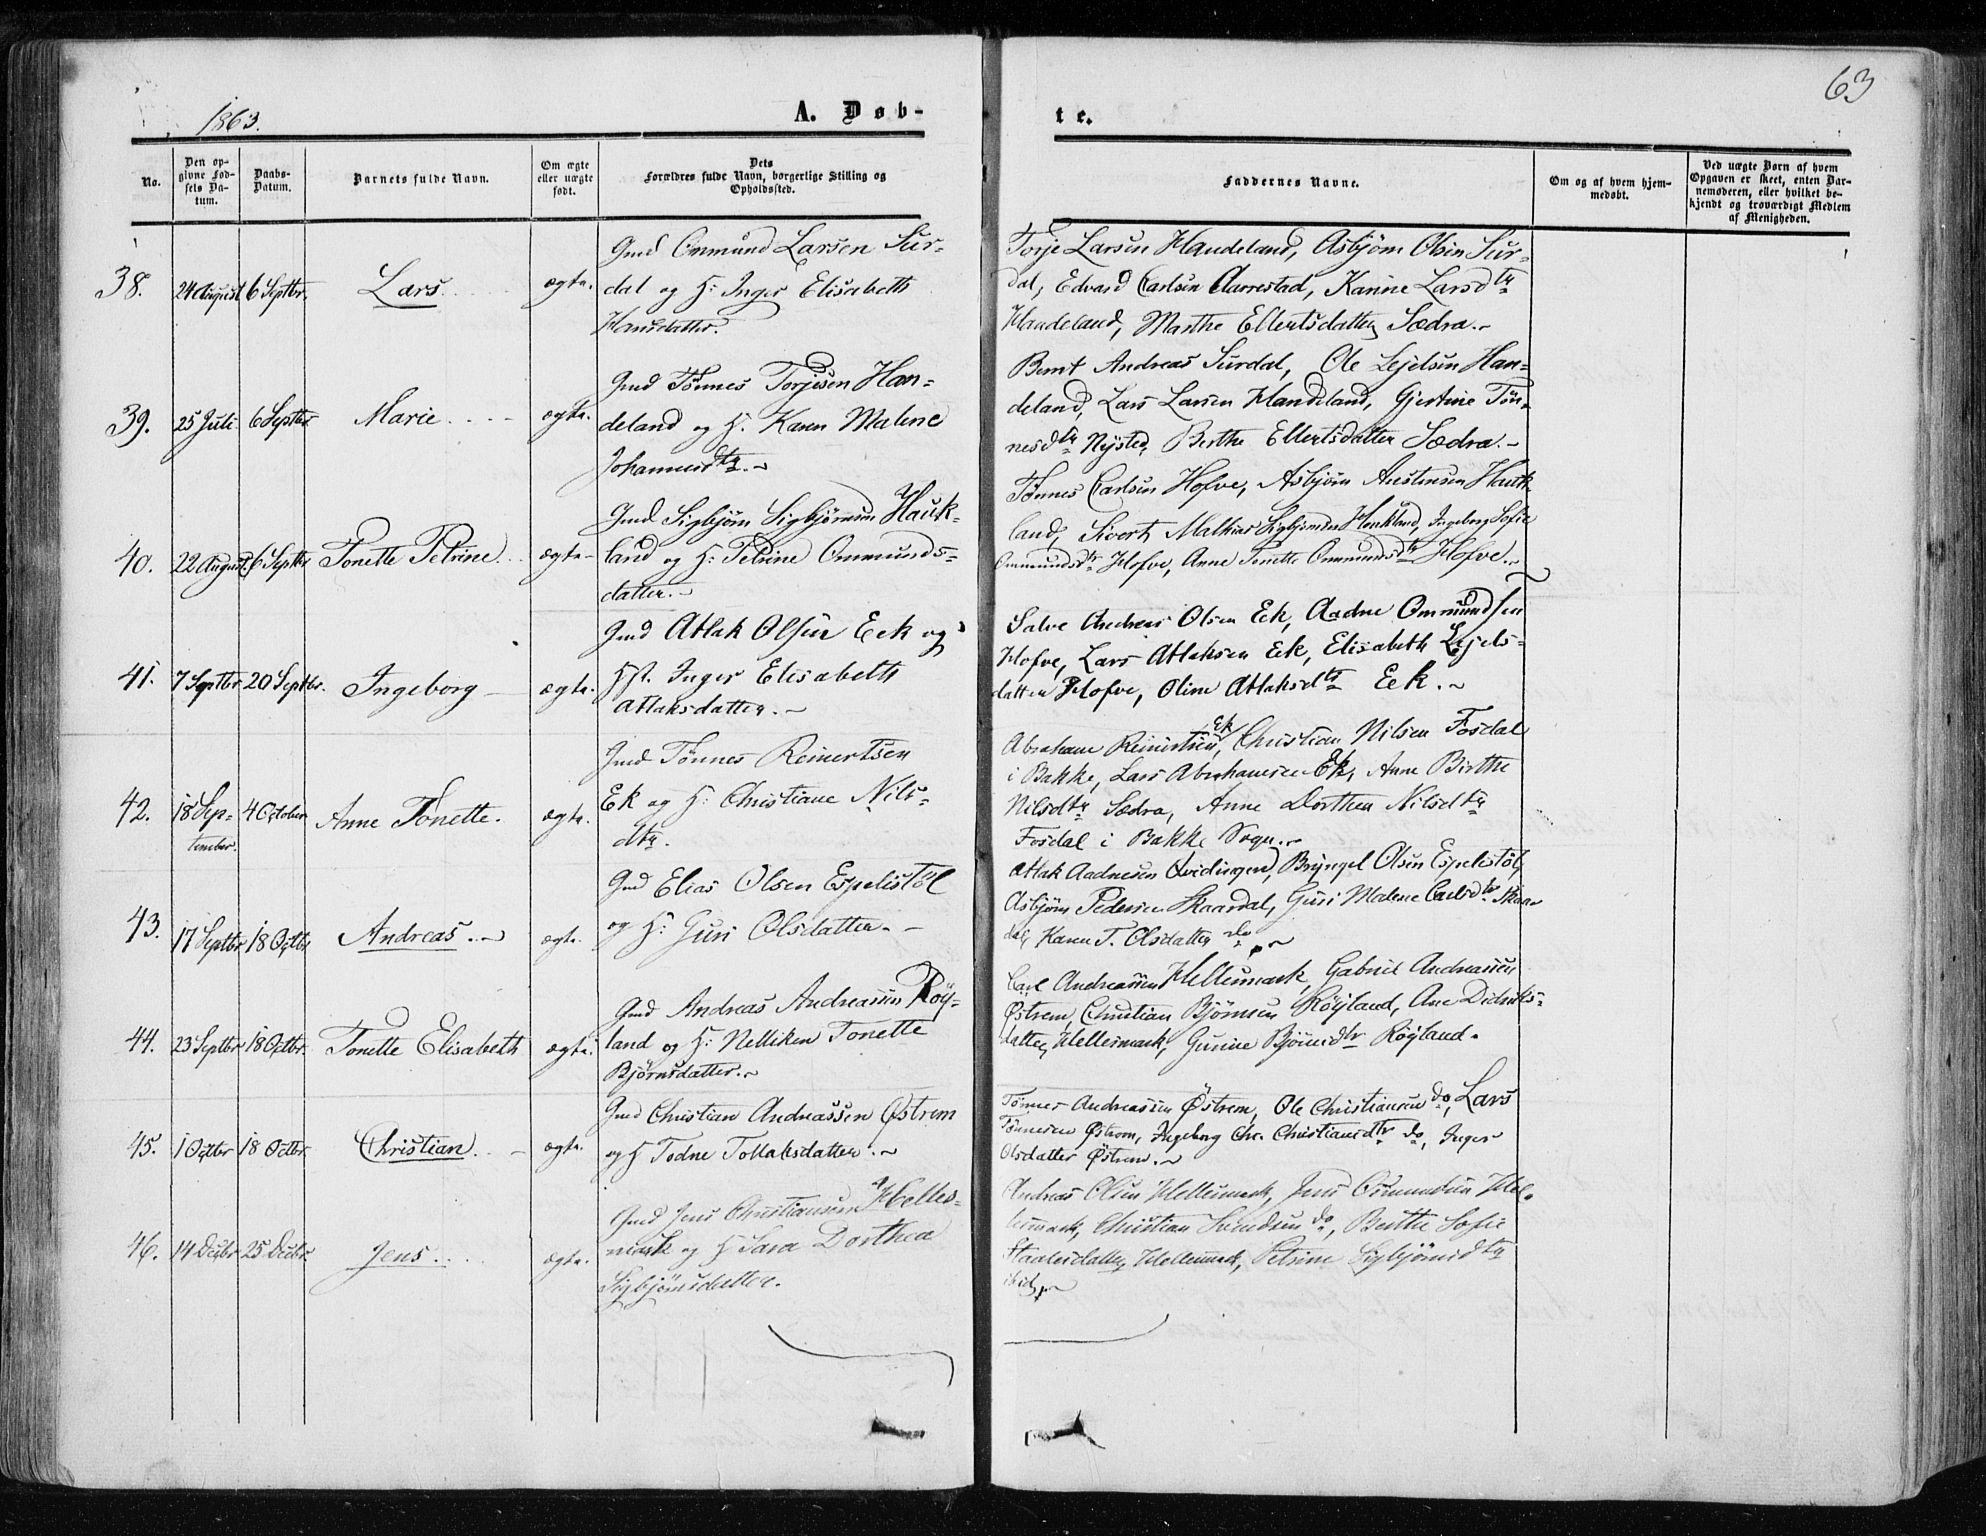 63
1863.
A. Døb-
te.
No.
Den op-
givne Fød-
sels Da-
tum.
Daabs-
Datum.
Barnets fulde Navn.
Om ægte
eller uægte
født.
Dets
Forældres fulde Navn, borgerlige Stilling og
Opholdssted.
Faddernes Navne.
Om og af hvem hjem-
medøbt.
Ved uægte Børn af hvem
Opgaven er skeet, enten Bar-
nemøderen, eller hvilket be-
kjendt og troværdigt Medlem
af Menigheden.
38.
24 August
6 Septbr.
Lars
ægte.
Gmd Ommund Larsen Sur-
dal og H: Inger Elisabeth
Hansdatter.
Torje Larsen Haudeland, Asbjørn Olsen Sur-
dal, Edvard Carlsen Aarrestad, Karine Larsdtr
Haadeland, Marthe Ellertsdatter Sædra.
39.
25 Juli
6 Septbr
Marie
ægte.
Gmd Tønnes Torjesen Han-
deland og H. Karen Malene
Johannesdtr.
Bernt Andreas Surdal, Ole Lejelsen Han-
deland, Lars Larsen Handeland, Gjertine Tøn-
nesdtr Nysted, Berthe Ellertsdatter Sædra.
40.
22 August
6 Septbr
Tonette Petrine
ægte
Gmd Sigbjørn Sigbjørnsen Hauk-
land og H: Petrine Ommunds-
datter.
Tønnes Carlsen Hofve, Asbjørn Austensen Hauk-
land, Sivert Mathias Sigbjørnsen Haukland, Ingeborg Sofie
Ommundsdtr Hofve, Anne Tonette Ommundsdtr Hofve.
41.
7 Septbr
20 Septbr.
Ingeborg
ægte.
Gmd Atlak Olsen Eek og
H. Inger Elisabeth
Atlaksdatter.
Salve Andreas Olsen Eek, Aadne Ommundsen
Hofve, Lars Atlaksen Eek, Elisabeth Lejels-
datter Hofve, Oline Atlaksdtr Eek.
42.
18 Sep-
tember.
4 October
Anne Tonette.
ægte.
Gmd Tønnes Reinertsen
Ek og H: Christiane Nils-
dtr.
Abraham Reinertsen Ek, Christian Nilsen Fosdal
i Bakke, Lars Abrahamsen Ek, Anne Birthe
Nilsdtr Sædra, Anne Dorthea Nilsdtr
Fosdal i Bakke Sogn.
43.
17 Septbr
18 Octbr
Andreas.
ægte.
Gmd Elias Olsen Espelistøl
og H: Guri Olsdatter.
Atlak Aadnesen Qvidingen, Bryngel Olsen Espelistøl,
Asbjørn Pedersen Skaardal, Guri Malene Carlsdtr Skaar-
dal, Karen T. Olsdatter do
44.
23 Septbr
18 Octbr.
Tonette Elisabeth
ægte.
Gmd Andreas Andreassen Røy-
land og H: Nelliken Tonette
Bjørnsdatter.
Carl Andreassen Hellesmark, Gabriel Andreassen
Østrem, Christian Bjørnsen Røyland, Ane Didriks-
datter Hellesmark, Gunine Bjørnsdtr Røyland.
45.
1 Octbr
18 Octbr.
Christian
ægte.
Gmd Christian Andreassen Østrem
og H Todne Tollaksdatter.
Tønnes Andreassen Østrem, Ole Christiansen do, Lars
Tønnesen Østrem, Ingeborg Chr. Christiansdtr do, Inger
Olsdatter Østrem.
46.
14 Decbr
25 Decbr.
Jens
ægte.
Gmd Jens Christiansen Helles-
mark og H Sara Dorthea
Sigbjørnsdatter.
Andreas Olsen Hellesmark, Jens Osmundsen Hel-
lesmark, Christian Svendsen do, Berthe Sofie
Staalesdatter Hellesmark, Petrine Sigbjørnsdtr
ibid.